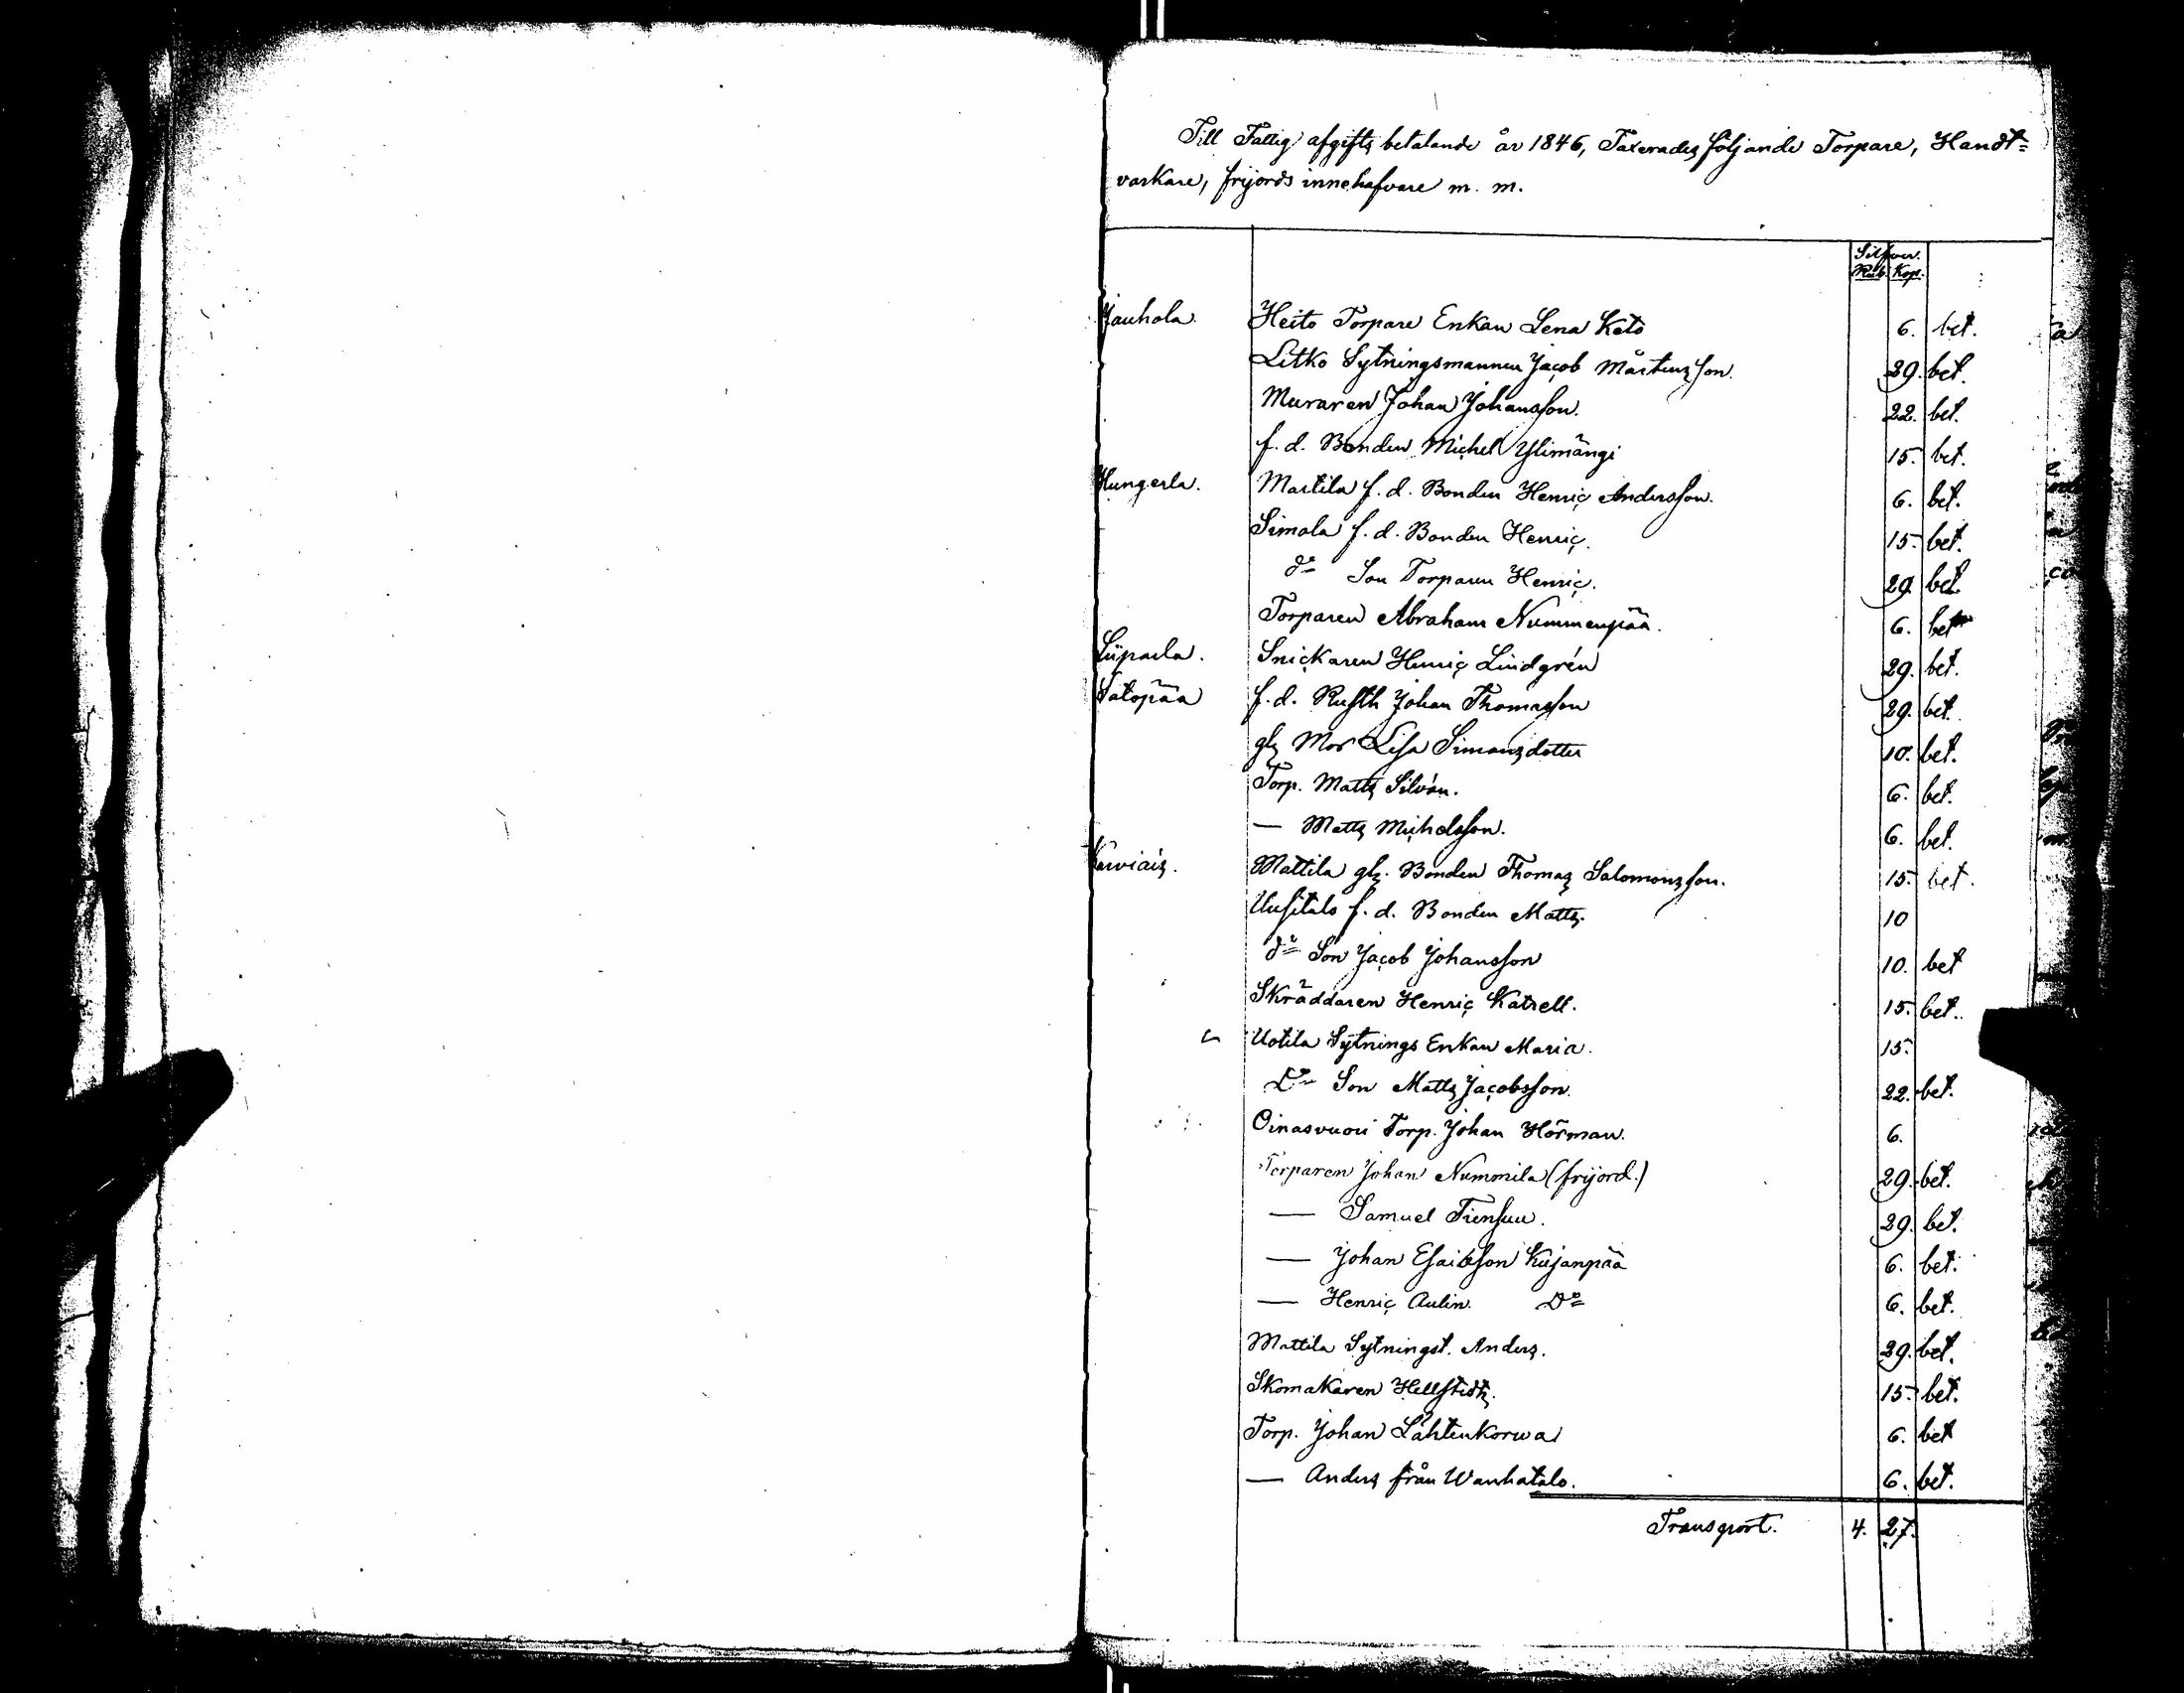 Till Fattig afgifts betalande år 1846, Taxerades följande Torpare, Handt=
varkare, frijords innehafvare m. m.
Silfver.
Rub. Kop.
Jauhola. Heito Torpare Enkan Lena Keto 6. bet.
Litko Sytningsmannen Jacob Mårtensson. 29. bet.
Muraren Johan Johansson. 22. bet.
f. d. Bonden Michel Ylimängi 15. bet.
Hungerla. Martila f. d. Bonden Henric Andersson. 6. bet.
Simola f. d. Bonden Henric. 15. bet.
do Son Torparen Henric. 29. bet.
Torparen Abraham Nummenpää. 6. bet
Liiparla. Snickaren Henric Lindgrén 29. bet.
Satopää f. d. Rusth Johan Thomasson 29. bet.
gls Mor Lisa Simonsdotter 10. bet.
Torp. Matts Silvén. 6. bet.
— Matts Michelsson. 6. bet.
Karviais. Mattila gls. Bonden Thomas Salomonsson. 15. bet.
Uusitalo f. d. Bonden Matts. 10
do Son Jacob Johansson 10. bet
Skräddaren Henric Katrell. 15. bet.
Uotila Sytnings Enkan Maria. 15.
Do Son Matts Jacobsson. 22. bet.
Oinasvuori Torp. Johan Hörman. 6.
Torparen Johan Nummila (frijord.) 29. bet.
— Samuel Tiensuu. 29. bet.
— Johan Esaiesson Kujanpää 6. bet.
— Henric Aulin. Do 6. bet.
Mattila Sytningst. Anders. 29. bet.
Skomakaren Hellstedt. 15. bet.
Torp. Johan Lähtenkorwa 6. bet
— Anders från Wanhatalo. 6. bet.
Transport. 4. 27.